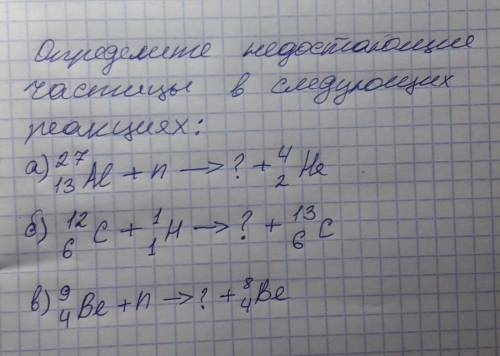 Определите недостающие
частицы в следующих
реакциях:
а) ²⁷₁₃Al + n → ? + ⁴₂He
б) ¹²₆C + ¹₁H → ? + ¹³₆C
в) ⁹₄Be + n → ? + ⁸₄Be